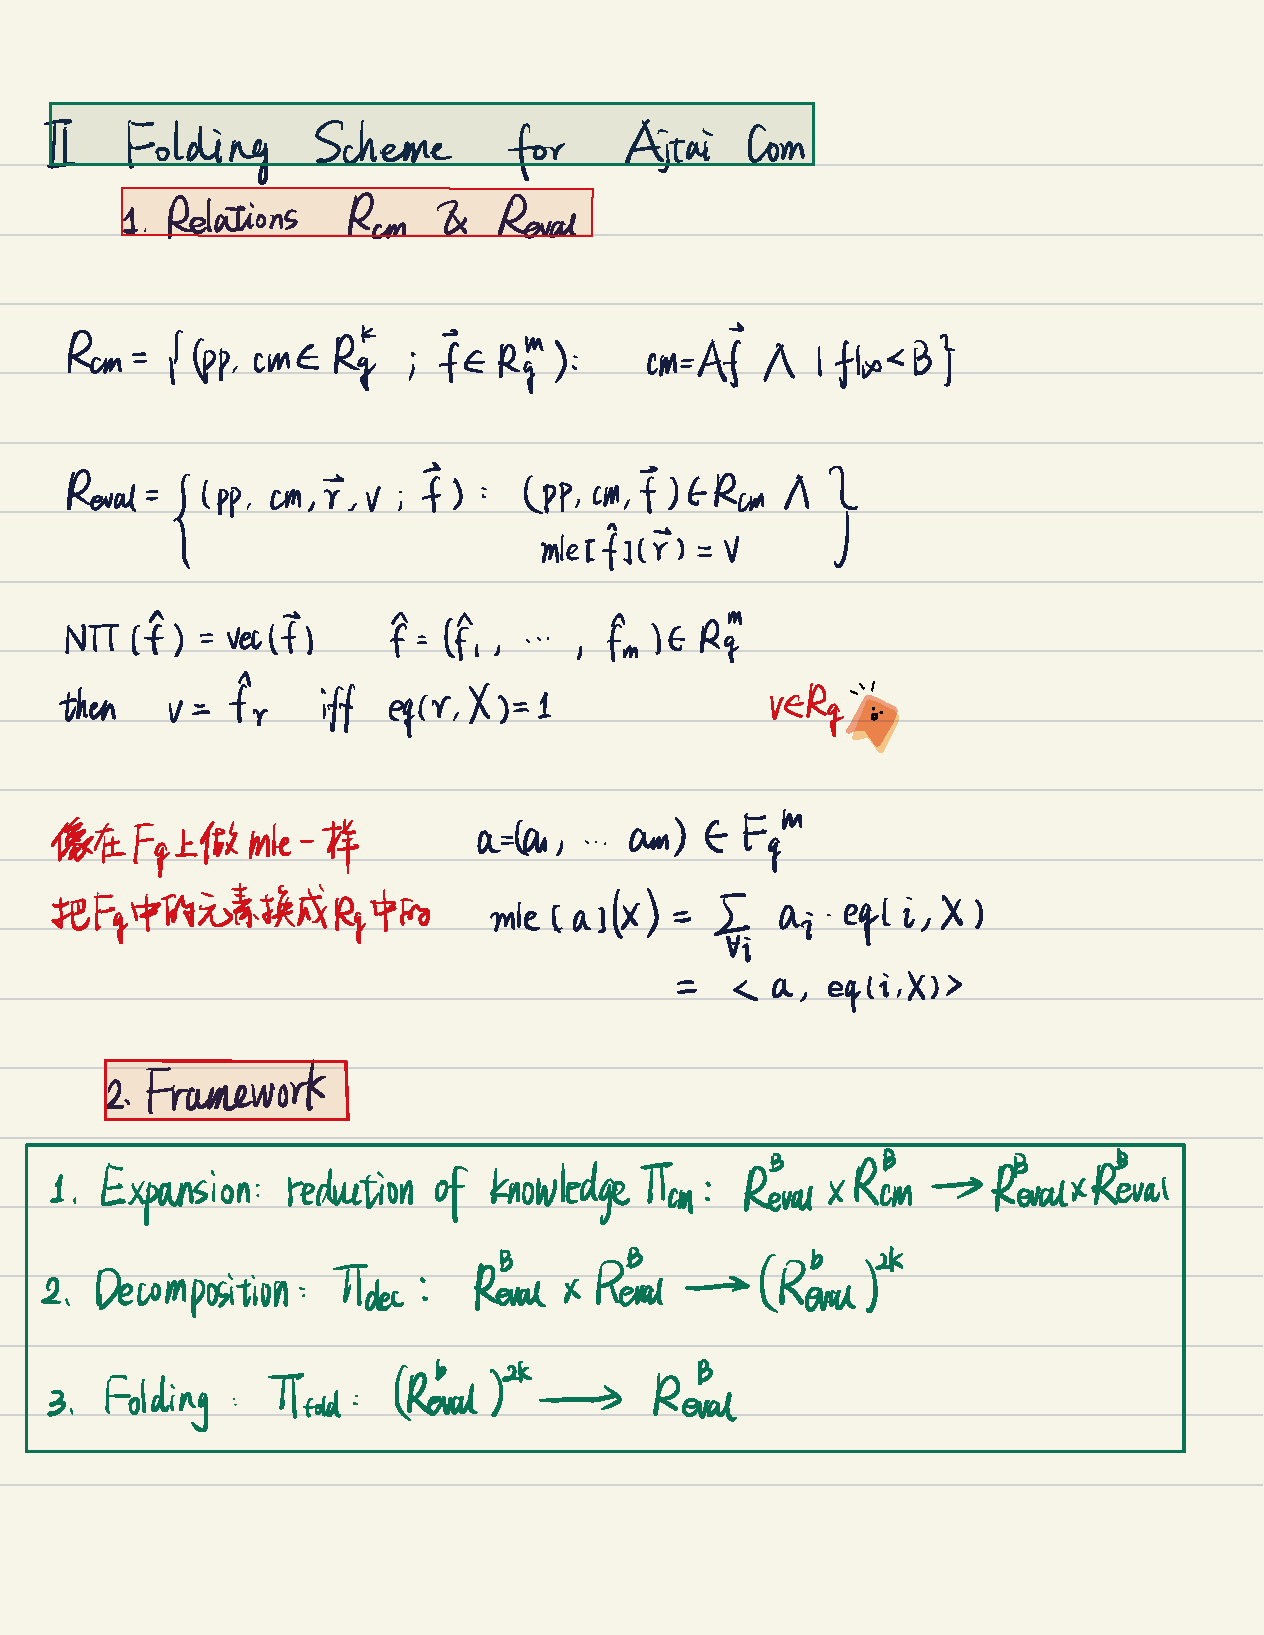 II Folding Scheme for Ajtai Com
1. Relations R_cm & R_eval
R_cm = { (pp, cm ∈ R_q^k ; f⃗ ∈ R_q^m ) : cm = Af⃗ ∧ |f|∞ < B }
R_eval = { (pp, cm, r⃗, v ; f⃗ ) : (pp, cm, f⃗ ) ∈ R_cm ∧ }
mle[f̂](r⃗) = v
NTT(f̂) = vec(f⃗) f̂ = (f̂_1, ⋯ , f̂_m) ∈ R_q^m
then v = f̂_r iff eq(r, X) = 1 v ∈ R_q
像在 F_q 上做 mle 一样 a = (a_1, ⋯ a_m) ∈ F_q^m
把 F_q 中的元素换成 R_q 中的 mle[a](X) = ∑_∀i a_i · eq(i, X)
= < a, eq(i, X) >
2. Framework
1. Expansion: reduction of knowledge Π_cm : R_eval^B × R_cm^B → R_eval^B × R_eval^B
2. Decomposition: Π_dec : R_eval^B × R_eval^B → (R_eval^b)^2k
3. Folding : Π_fold : (R_eval^b)^2k → R_eval^B